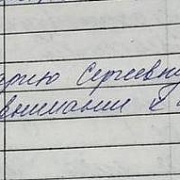 арию Сергеевну
внимании к